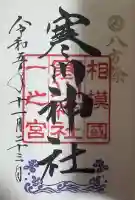 八方除
相模國
寒川神社
一之宮
令和五年十一月十三日